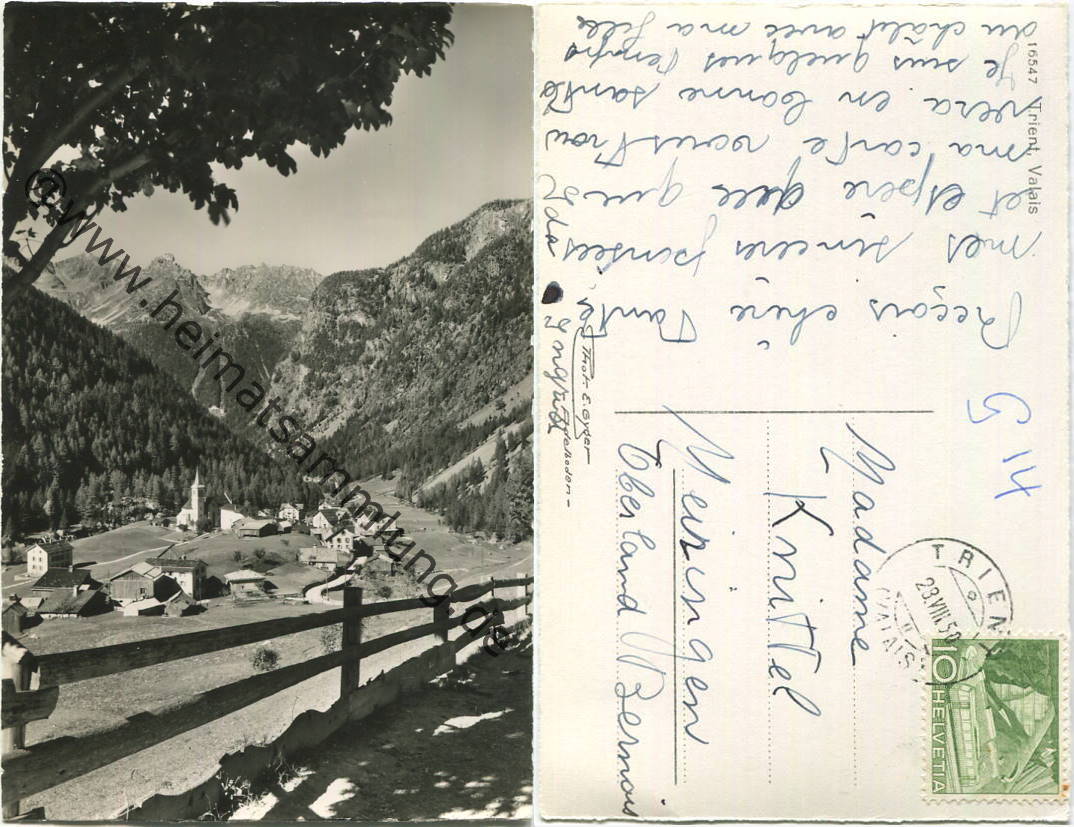 © www.heimatsammlung.de
16547 Trient, Valais
Reçois chère Tante,
mes sincères pensées
et espère que
ma carte vous trou
vera en bonne santé
Je suis quelques temps
au châlet avec ma fille
Ida
Ingrid
Phot. E. Gyger Adelboden
G 14
TRIENT
23.VIII.50
(VALAIS)
10 HELVETIA
Madame
Knittel
Meiringen
Oberland Bernois